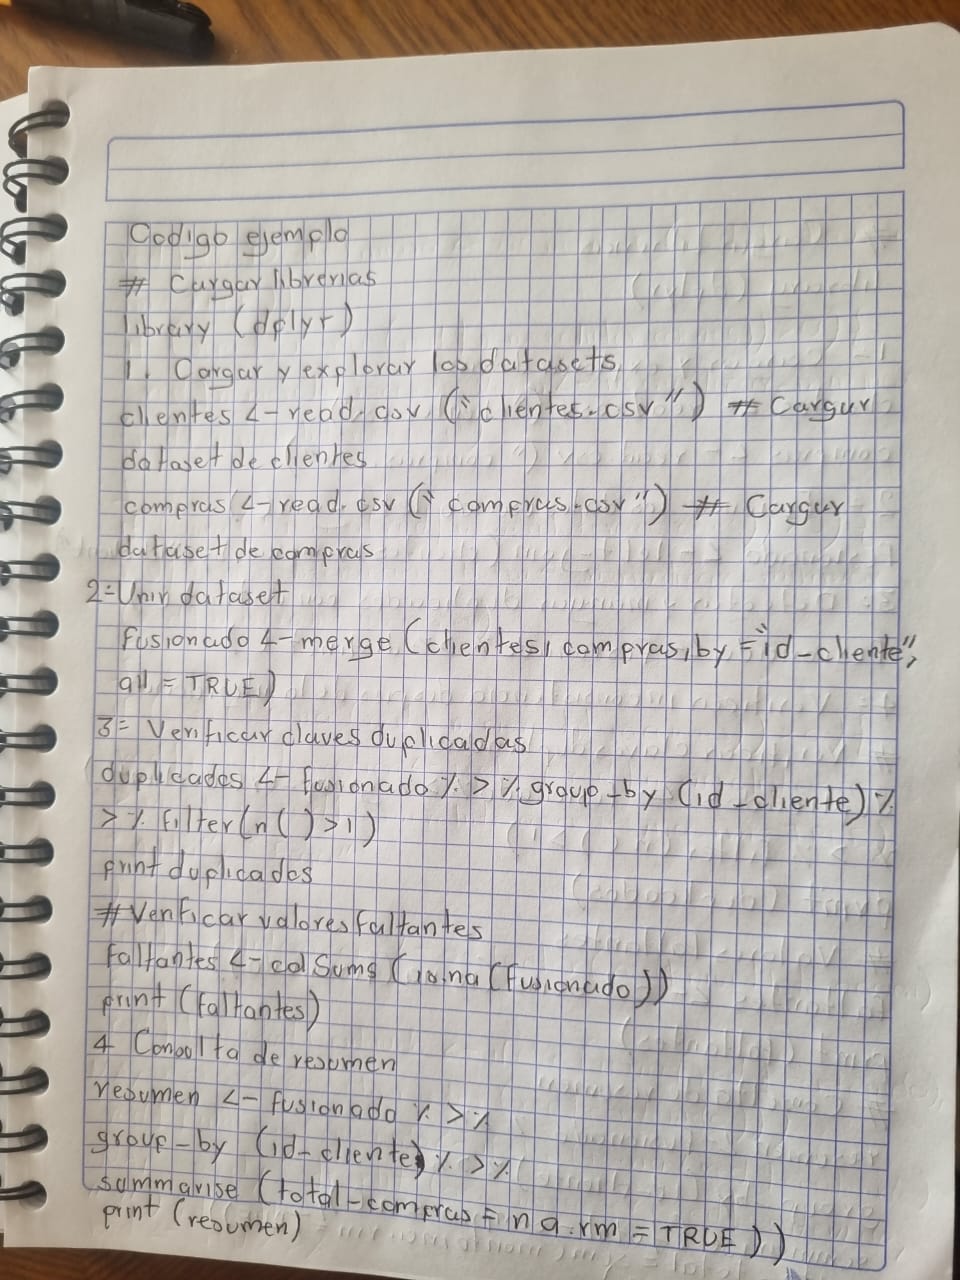 Codigo ejemplo
# Cargar librerias
library (dplyr)
1. Cargar y explorar los datasets
clientes <- read.csv ("clientes.csv") # Cargar
dataset de clientes
compras <- read.csv ("compras.csv") # Cargar
dataset de compras
2= Unir dataset
fusionado <- merge (clientes, compras, by = "id-cliente",
all = TRUE)
3= Verificar claves duplicadas
duplicados <- fusionado %>% group-by (id-cliente) %
>% filter (n() > 1)
print duplicados
# Verificar valores faltantes
faltantes <- colSums (is.na (fusionado))
print (faltantes)
4 Consulta de resumen
resumen <- fusionado %>%
group-by (id-cliente) %>%
summarise (total-compras = na.rm = TRUE))
print (resumen)